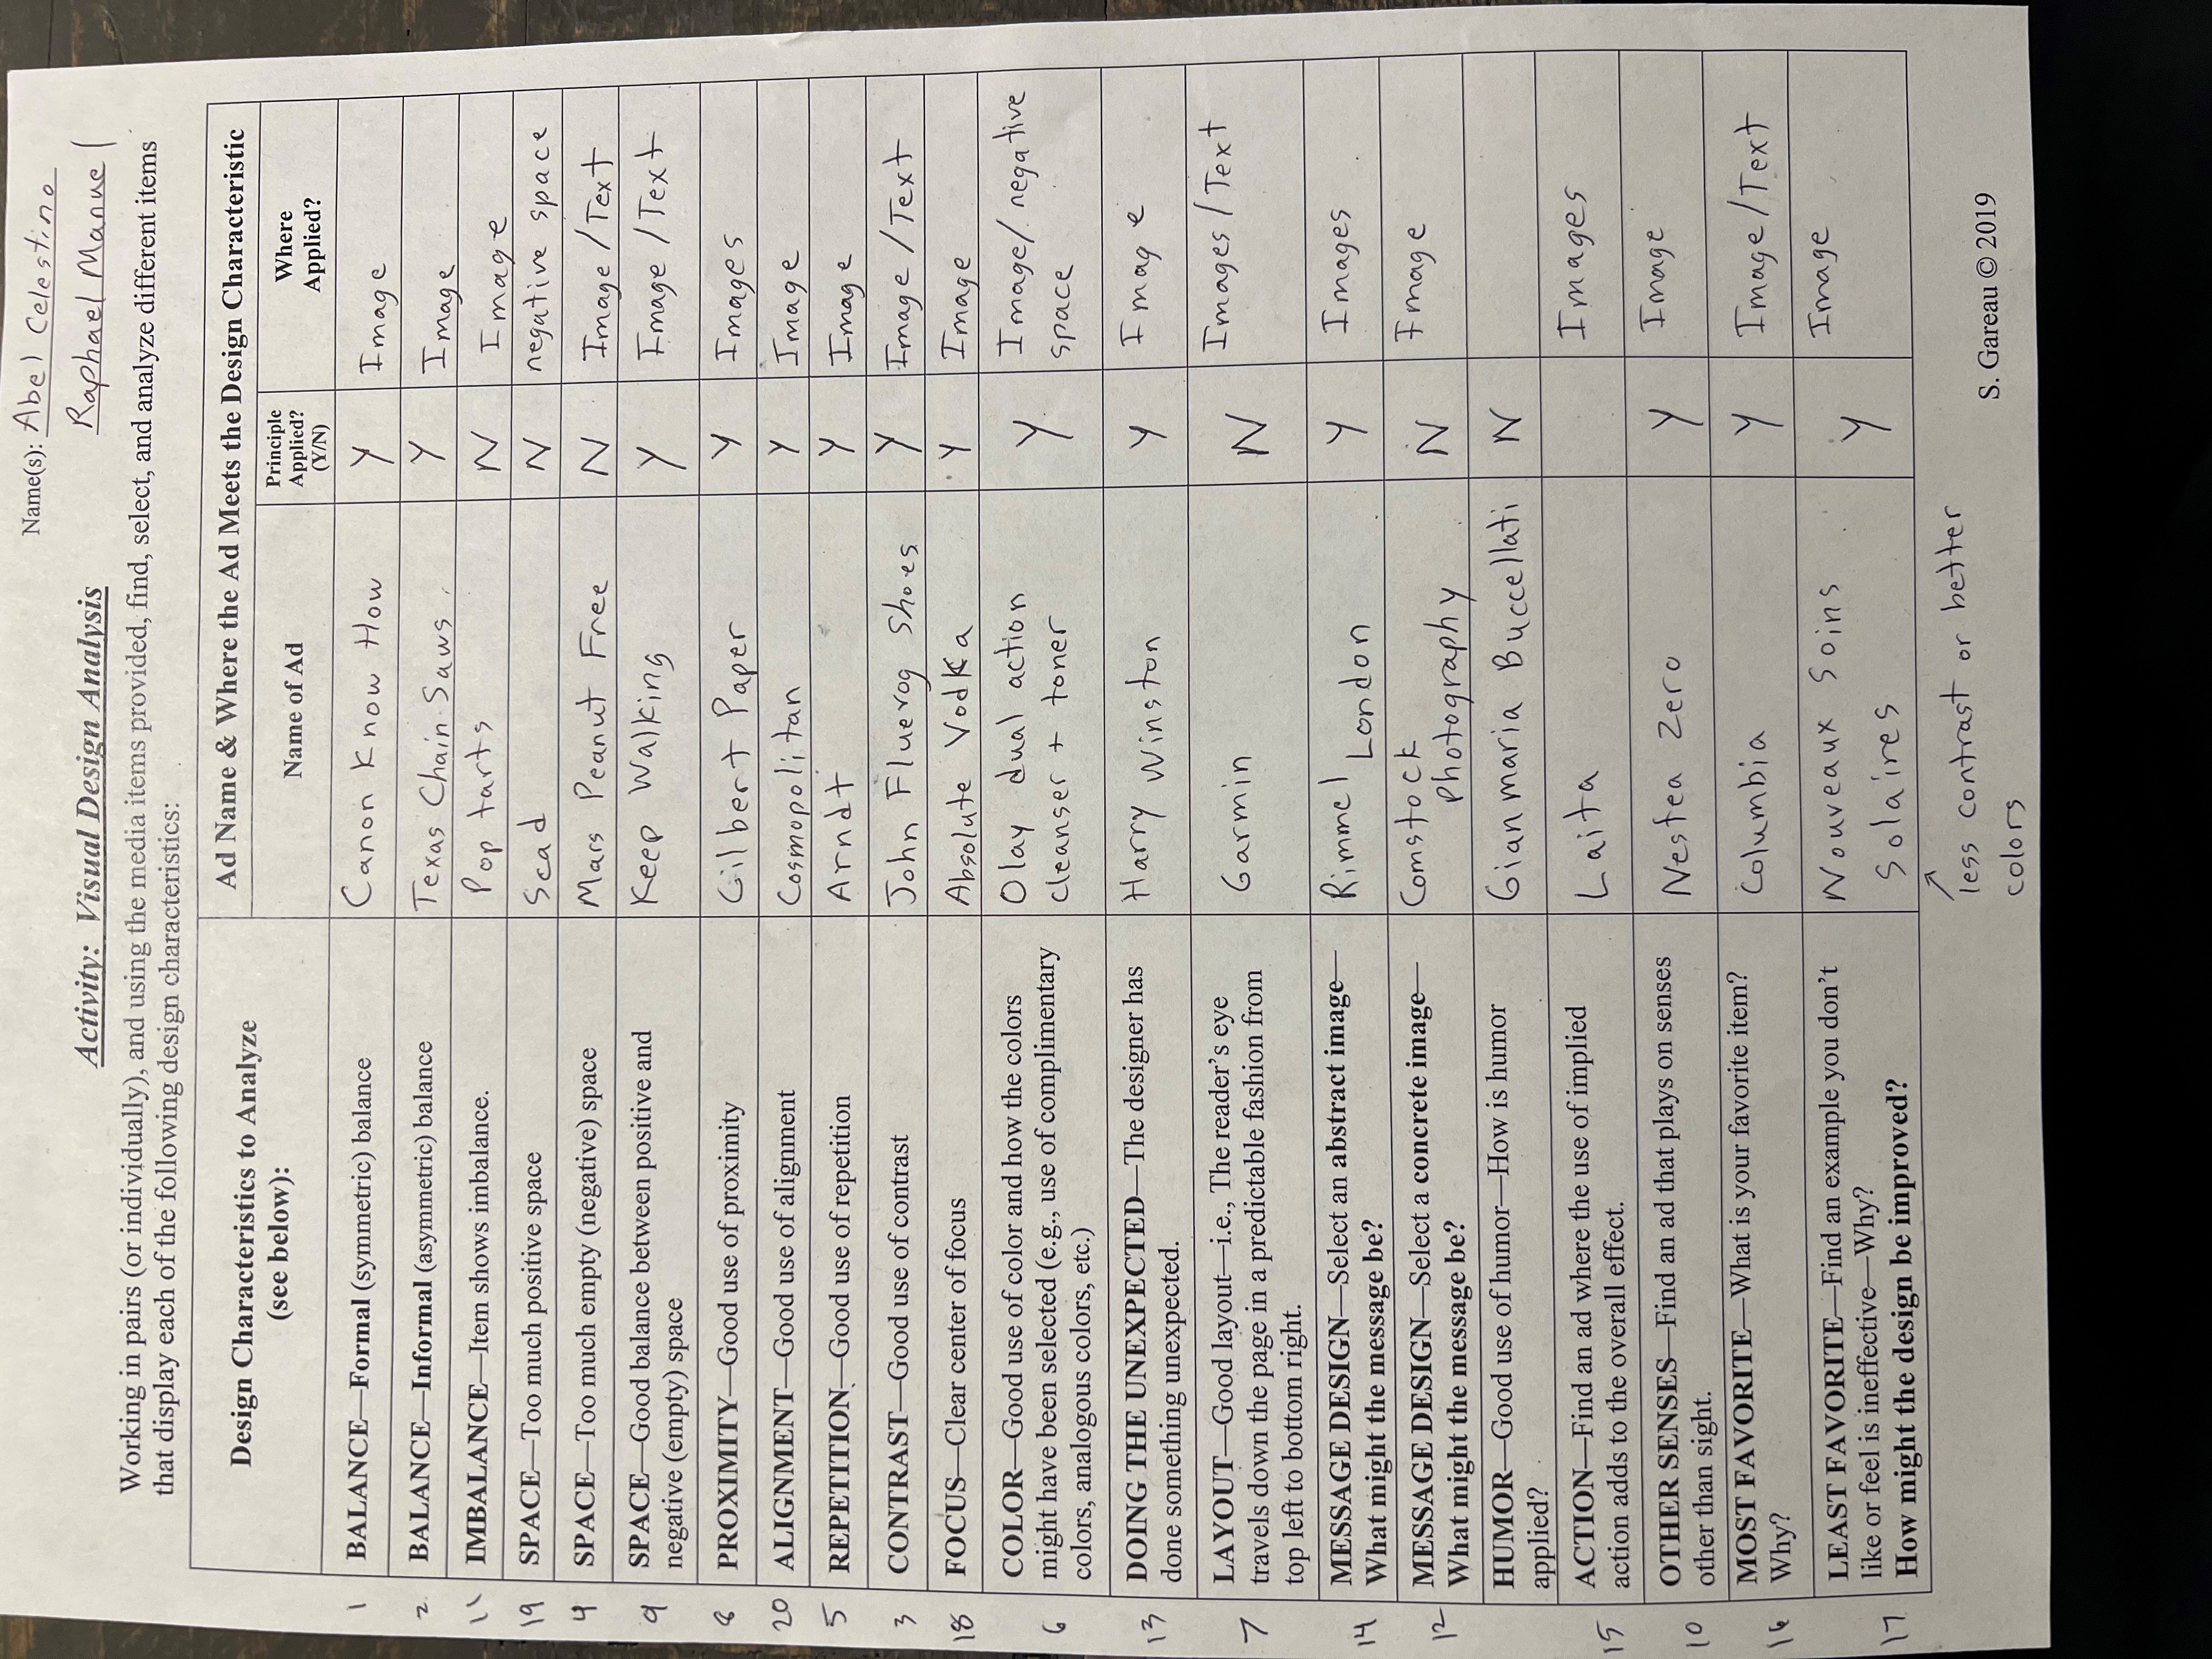 Name(s): Abel Celestino
Raphael Manuel
Activity: Visual Design Analysis
Working in pairs (or individually), and using the media items provided, find, select, and analyze different items
that display each of the following design characteristics:
Design Characteristics to Analyze
(see below):
Ad Name & Where the Ad Meets the Design Characteristic
Name of Ad
Principle
Applied?
(Y/N)
Where
Applied?
1 BALANCE—Formal (symmetric) balance Canon Know How Y Image
2 BALANCE—Informal (asymmetric) balance Texas Chain Saws Y Image
11 IMBALANCE—Item shows imbalance. Pop tarts N Image
19 SPACE—Too much positive space Scad N negative space
4 SPACE—Too much empty (negative) space Mars Peanut Free N Image / Text
9 SPACE—Good balance between positive and
negative (empty) space
Keep Walking Y Image / Text
8 PROXIMITY—Good use of proximity Gilbert Paper Y Images
20 ALIGNMENT—Good use of alignment Cosmopolitan Y Image
5 REPETITION—Good use of repetition Arndt Y Image
3 CONTRAST—Good use of contrast John Fluevog Shoes Y Image / Text
18 FOCUS—Clear center of focus Absolute Vodka Y Image
6 COLOR—Good use of color and how the colors
might have been selected (e.g., use of complimentary
colors, analogous colors, etc.)
Olay dual action
cleanser + toner
Y
Image/ negative
space
13 DOING THE UNEXPECTED—The designer has
done something unexpected.
Harry Winston Y Image
7 LAYOUT—Good layout—i.e., The reader's eye
travels down the page in a predictable fashion from
top left to bottom right.
Garmin N Images / Text
14 MESSAGE DESIGN—Select an abstract image—
What might the message be?
Rimmel
London
Y Images
12 MESSAGE DESIGN—Select a concrete image—
What might the message be?
Comstock
Photography
N Image
HUMOR—Good use of humor—How is humor
applied?
Gianmaria Buccellati N
15 ACTION—Find an ad where the use of implied
action adds to the overall effect.
Laita Images
10 OTHER SENSES—Find an ad that plays on senses
other than sight.
Nestea Zero Y Image
16 MOST FAVORITE—What is your favorite item?
Why?
Columbia Y Image/Text
17 LEAST FAVORITE—Find an example you don't
like or feel is ineffective—Why?
How might the design be improved?
Nouveaux Soins
Solaires
Y Image
↑
less contrast or better
colors
S. Gareau © 2019